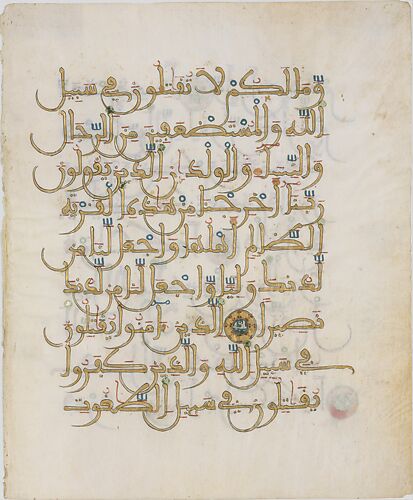 وَمَا لَكُمْ لَا تُقَٰتِلُونَ فِي سَبِيلِ
اِ۬للَّهِ وَالْمُسْتَضْعَفِينَ مِنَ اَ۬لرِّجَالِ
وَالنِّسَآءِ وَالْوِلْدَٰنِ اِ۬لذِينَ يَقُولُونَ
رَبَّنَآ أَخْرِجْنَا مِنْ هَٰذِهِ اِ۬لْقَرْيَةِ
اِ۬لظَّالِمِ أَهْلُهَا وَاجْعَل لَّنَا مِن
لَّدُنكَ وَلِيّاً وَاجْعَل لَّنَا مِن لَّدُنكَ
نَصِيراً اِ۬لذِينَ ءَامَنُواْ يُقَٰتِلُونَ
فِي سَبِيلِ اِ۬للَّهِ وَالذِينَ كَفَرُواْ
يُقَٰتِلُونَ فِي سَبِيلِ اِ۬لطَّٰغُوتِ